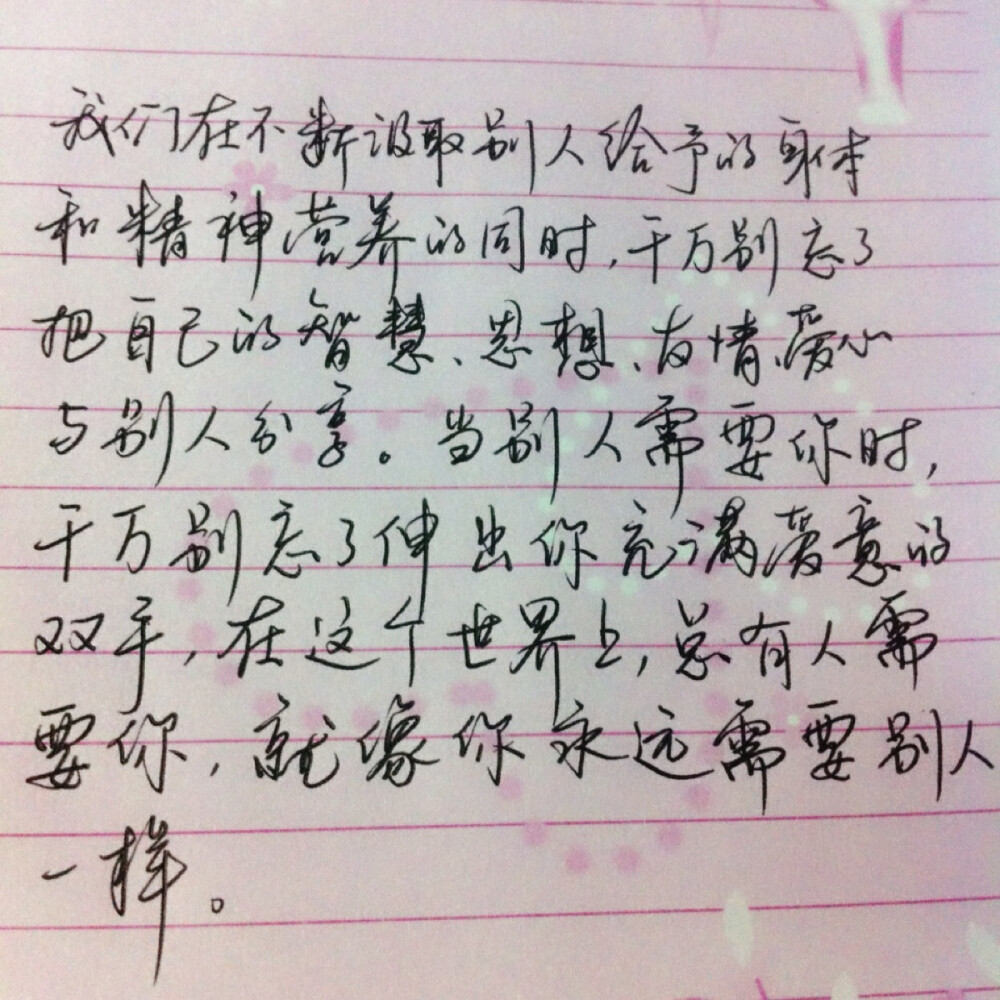 我们在不断汲取别人给予的身体
和精神营养的同时,千万别忘了
把自己的智慧、思想、友情、爱心
与别人分享。当别人需要你时,
千万别忘了伸出你充满爱意的
双手,在这个世界上,总有人需
要你,就像你永远需要别人
一样。